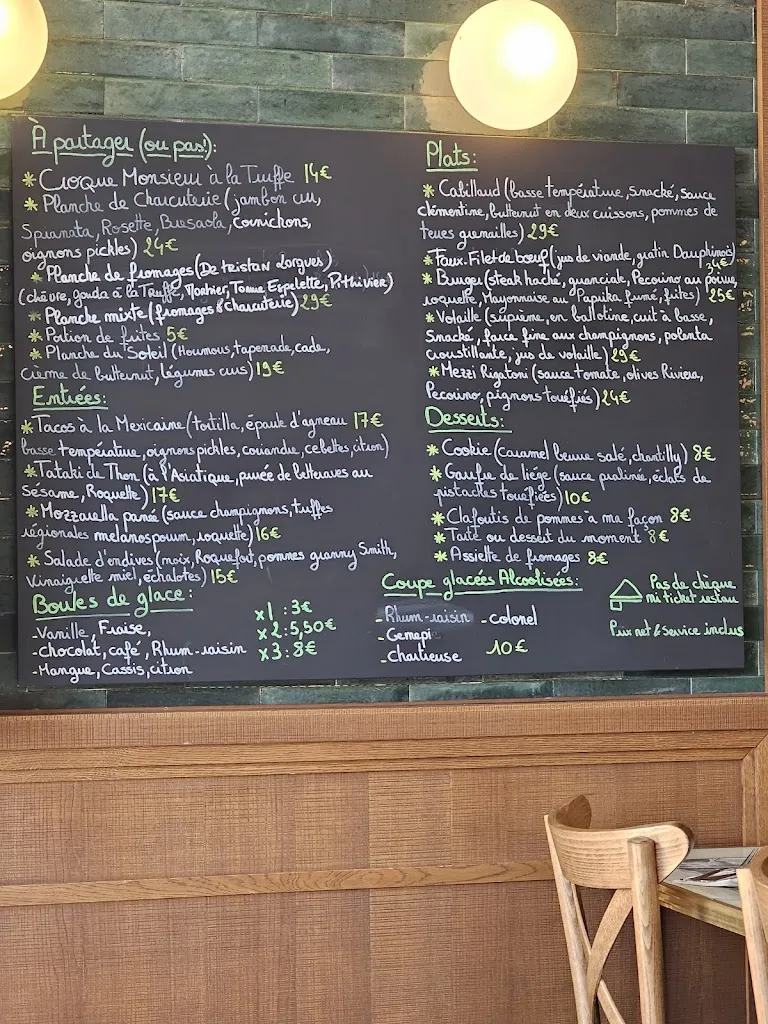 À partager (ou pas!):
* Croque Monsieur à la Truffe 14€
* Planche de Charcuterie (jambon cru,
Spianata, Rosette, Bresaola, cornichons,
oignons pickles) 24€
* Planche de fromages (De tristan Lorgues)
(chèvre, gouda à la Truffe, Morbier, Tomme Espelette, Pithivier)
* Planche mixte (fromages & charcuterie) 29€
* Portion de frites 5€
* Planche du Soleil (Houmous, tapenade, cade,
crème de butternut, légumes crus) 19€
Entrées:
* Tacos à la Mexicaine (tortilla, épaule d'agneau 17€
basse température, oignons pickles, coriandre, cebettes, citron)
* Tataki de Thon (à l'Asiatique, purée de betteraves au
Sésame, Roquette) 17€
* Mozzarella panée (sauce champignons, truffes
régionales melanosporum, roquette) 16€
* Salade d'endives (noix, Roquefort, pommes granny Smith,
Vinaigrette miel, échalotes) 15€
Boules de glace:
- Vanille, Fraise,
- chocolat, café, Rhum-raisin
- Mangue, Cassis, citron
x1 : 3€
x2 : 5,50€
x3 : 8€
Plats:
* Cabillaud (basse température, snacké, sauce
clémentine, butternut en deux cuissons, pommes de
terres grenailles) 29€
* Faux-Filet de bœuf (jus de viande, gratin Dauphinois)
34€
* Burger (steak haché, guanciale, Pecorino au poivre,
roquette, Mayonnaise au Paprika fumé, frites) 25€
* Volaille (suprême, en ballotine, cuit à basse,
Snacké, farce fine aux champignons, polenta
croustillante, jus de volaille) 29€
* Mezzi Rigatoni (sauce tomate, olives Riviera,
Pecorino, pignons torréfiés) 24€
Desserts:
* Cookie (caramel beurre salé, chantilly) 8€
* Gaufre de liège (sauce pralinée, éclats de
pistaches torréfiées) 10€
* Clafoutis de pommes à ma façon 8€
* Tarte ou dessert du moment 8€
* Assiette de fromages 8€
Coupe glacées Alcoolisées:
- Rhum-raisin - colonel
- Genepi
- Chartreuse 10€
Pas de chèque
ni ticket restau
Prix net & Service inclus